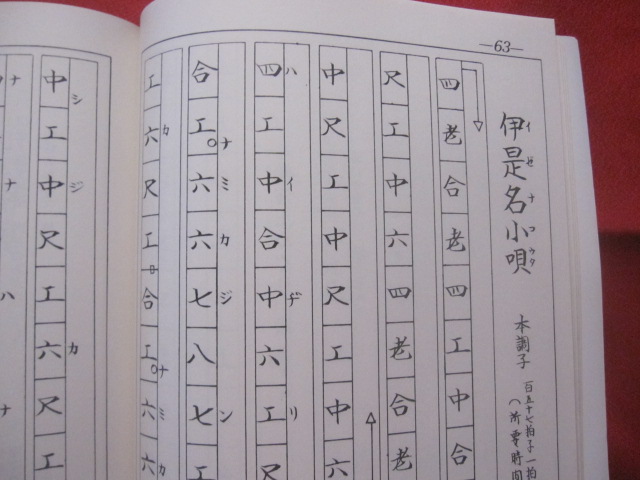 —63—
伊是名小唄
イゼナコウタ
本調子
百五十七拍子一拍
(所要時間
四老合老四工中合
尺工中六四老合老
中尺工中尺工中六
四工中合中六工尺
ハイヂリ
合工六六七八七工
ナミカジン
工六尺工合工六六
カナミカ
中工中尺工六尺工
シジカ
ナナハナ